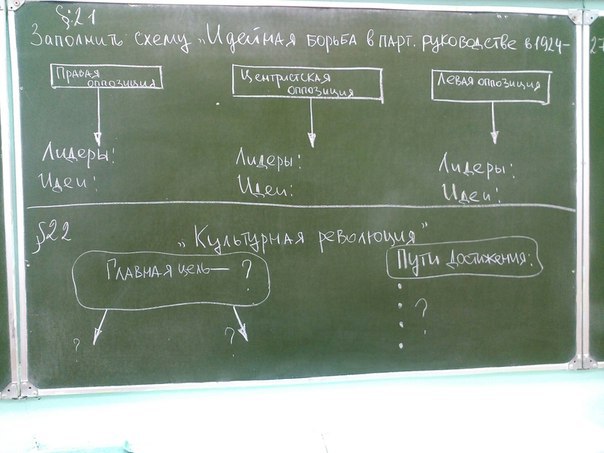 §21
Заполнить схему „Идейная борьба в парт. руководстве в 1924-27
Правая оппозиция
Центристская оппозиция
Левая оппозиция
Лидеры:
Идеи:
Лидеры:
Идеи:
Лидеры:
Идеи:
§22
„Культурная революция"
Главная цель — ?
?
?
Пути достижения:
?